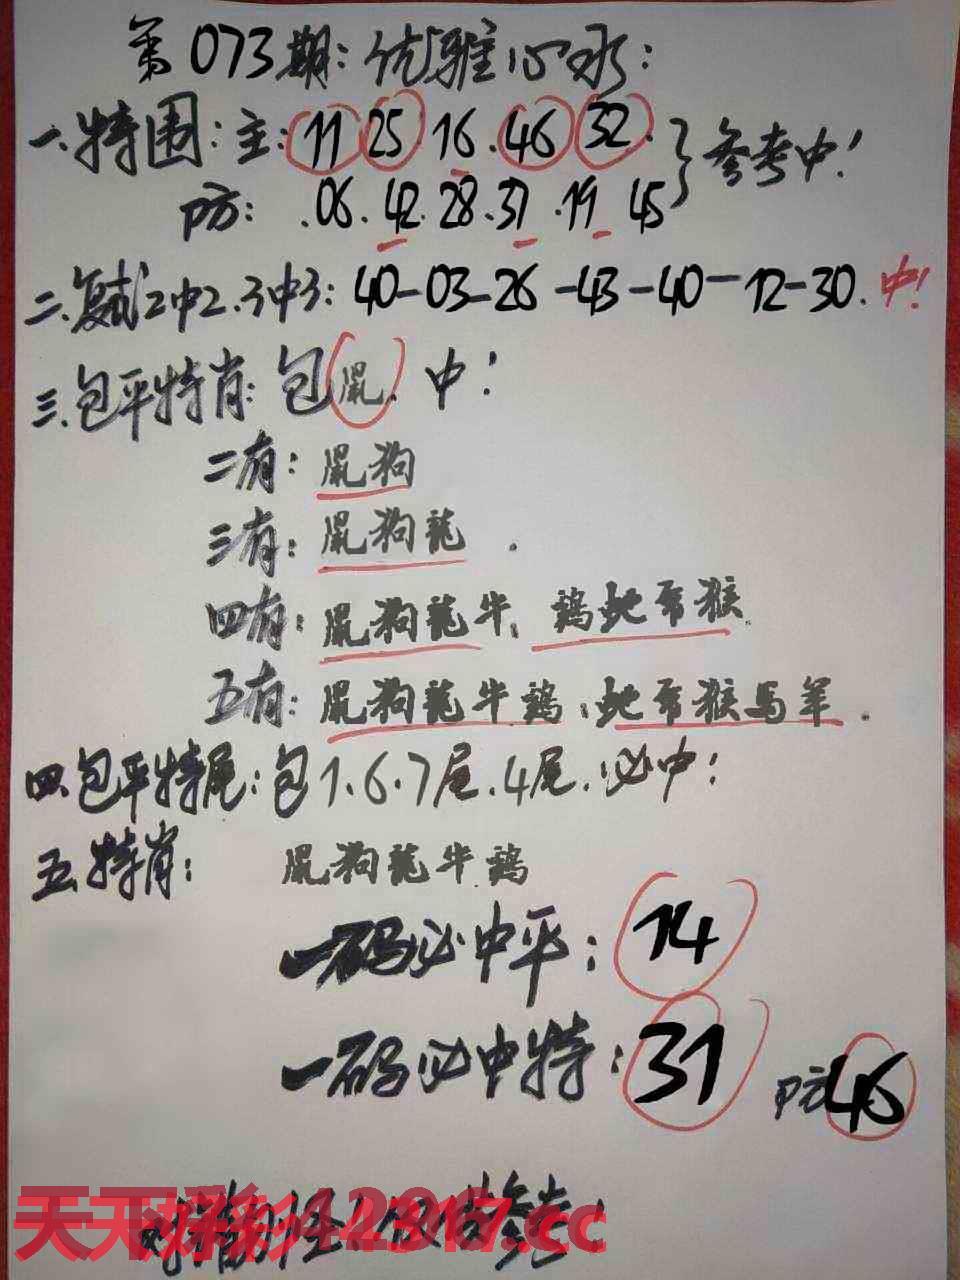 第073期：优雅心水：
一.特围：主：11 25 16.46 32. 参考中！
防：.06.42.28.37.19 45
二.复试2中2.3中3：40-03-26-43-40-12-30.中！
三.包平特肖：包鼠.中！
二有：鼠狗
三有：鼠狗龍.
四有：鼠狗龍牛、鷄蛇兔猴
五有：鼠狗龍牛鷄、蛇兔猴馬羊.
四.包平特尾：包1.6.7尾.4尾.必中！
五.特肖：鼠狗龍牛鷄
一码必中平：14
一码必中特：31 防46
天下彩 12317.cc
参考！